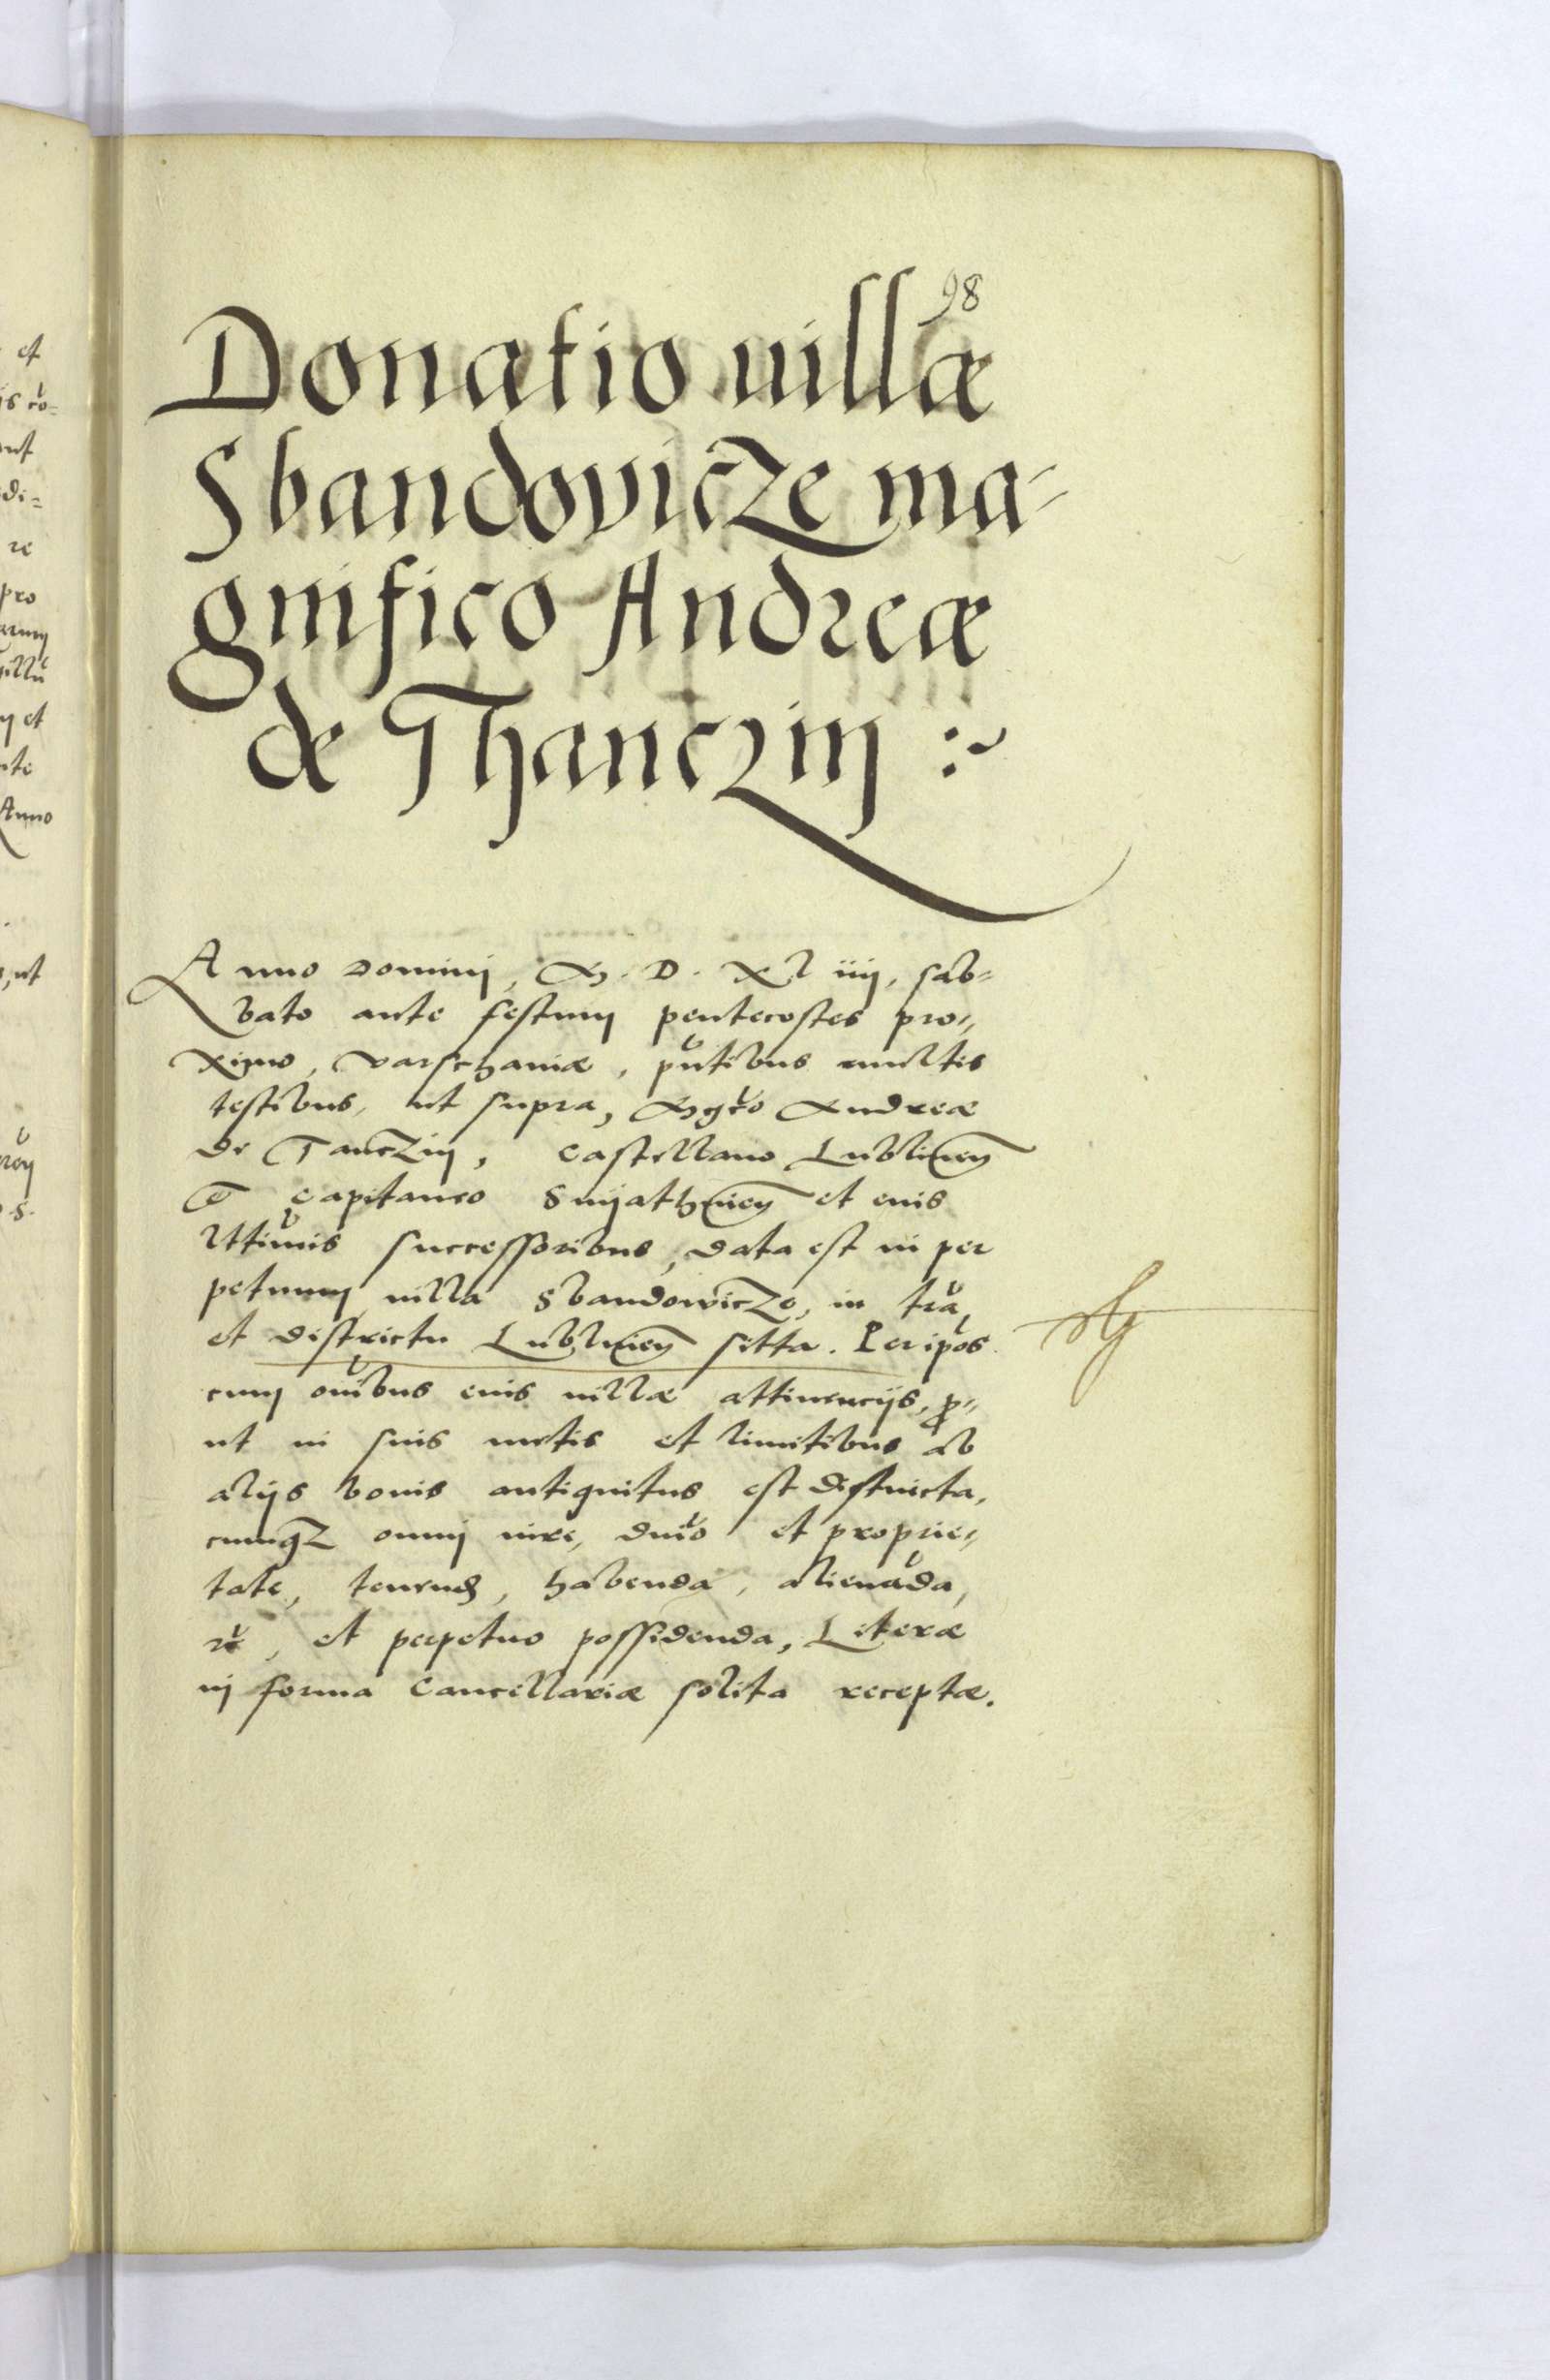 98
Donatio uillæ
Sbandovicze ma-
gnifico Andreæ
de Thanczin :~
Anno Dominj, M. D. Xl iiij, sab=
bato ante festum pentecostes pro„
ximo, Varschauiæ, pñtibus multis
testibus, ut supra, Mgco Andreæ
de Tanczin, Castellano Lublinen
Et Capitaneo Snijathinen et eius
lttimis successoribus, data est in per
petuum uilla Sbandowicze, in tra,
et districtu Lublinen sitta. Per ipos
cum oibus eius uillæ attinencijs, p„
ut in suis metis et limitibus ab
alijs bonis antiquitus est distincta,
cumqz omnj iure, dnio et proprie„
tate, tenend, habenda, alienada,
rc, et perpetuo possidenda, Literæ
in forma Cancellariæ solita receptæ.
et
ut
di=
re
pro
arum
et
Anno
ut